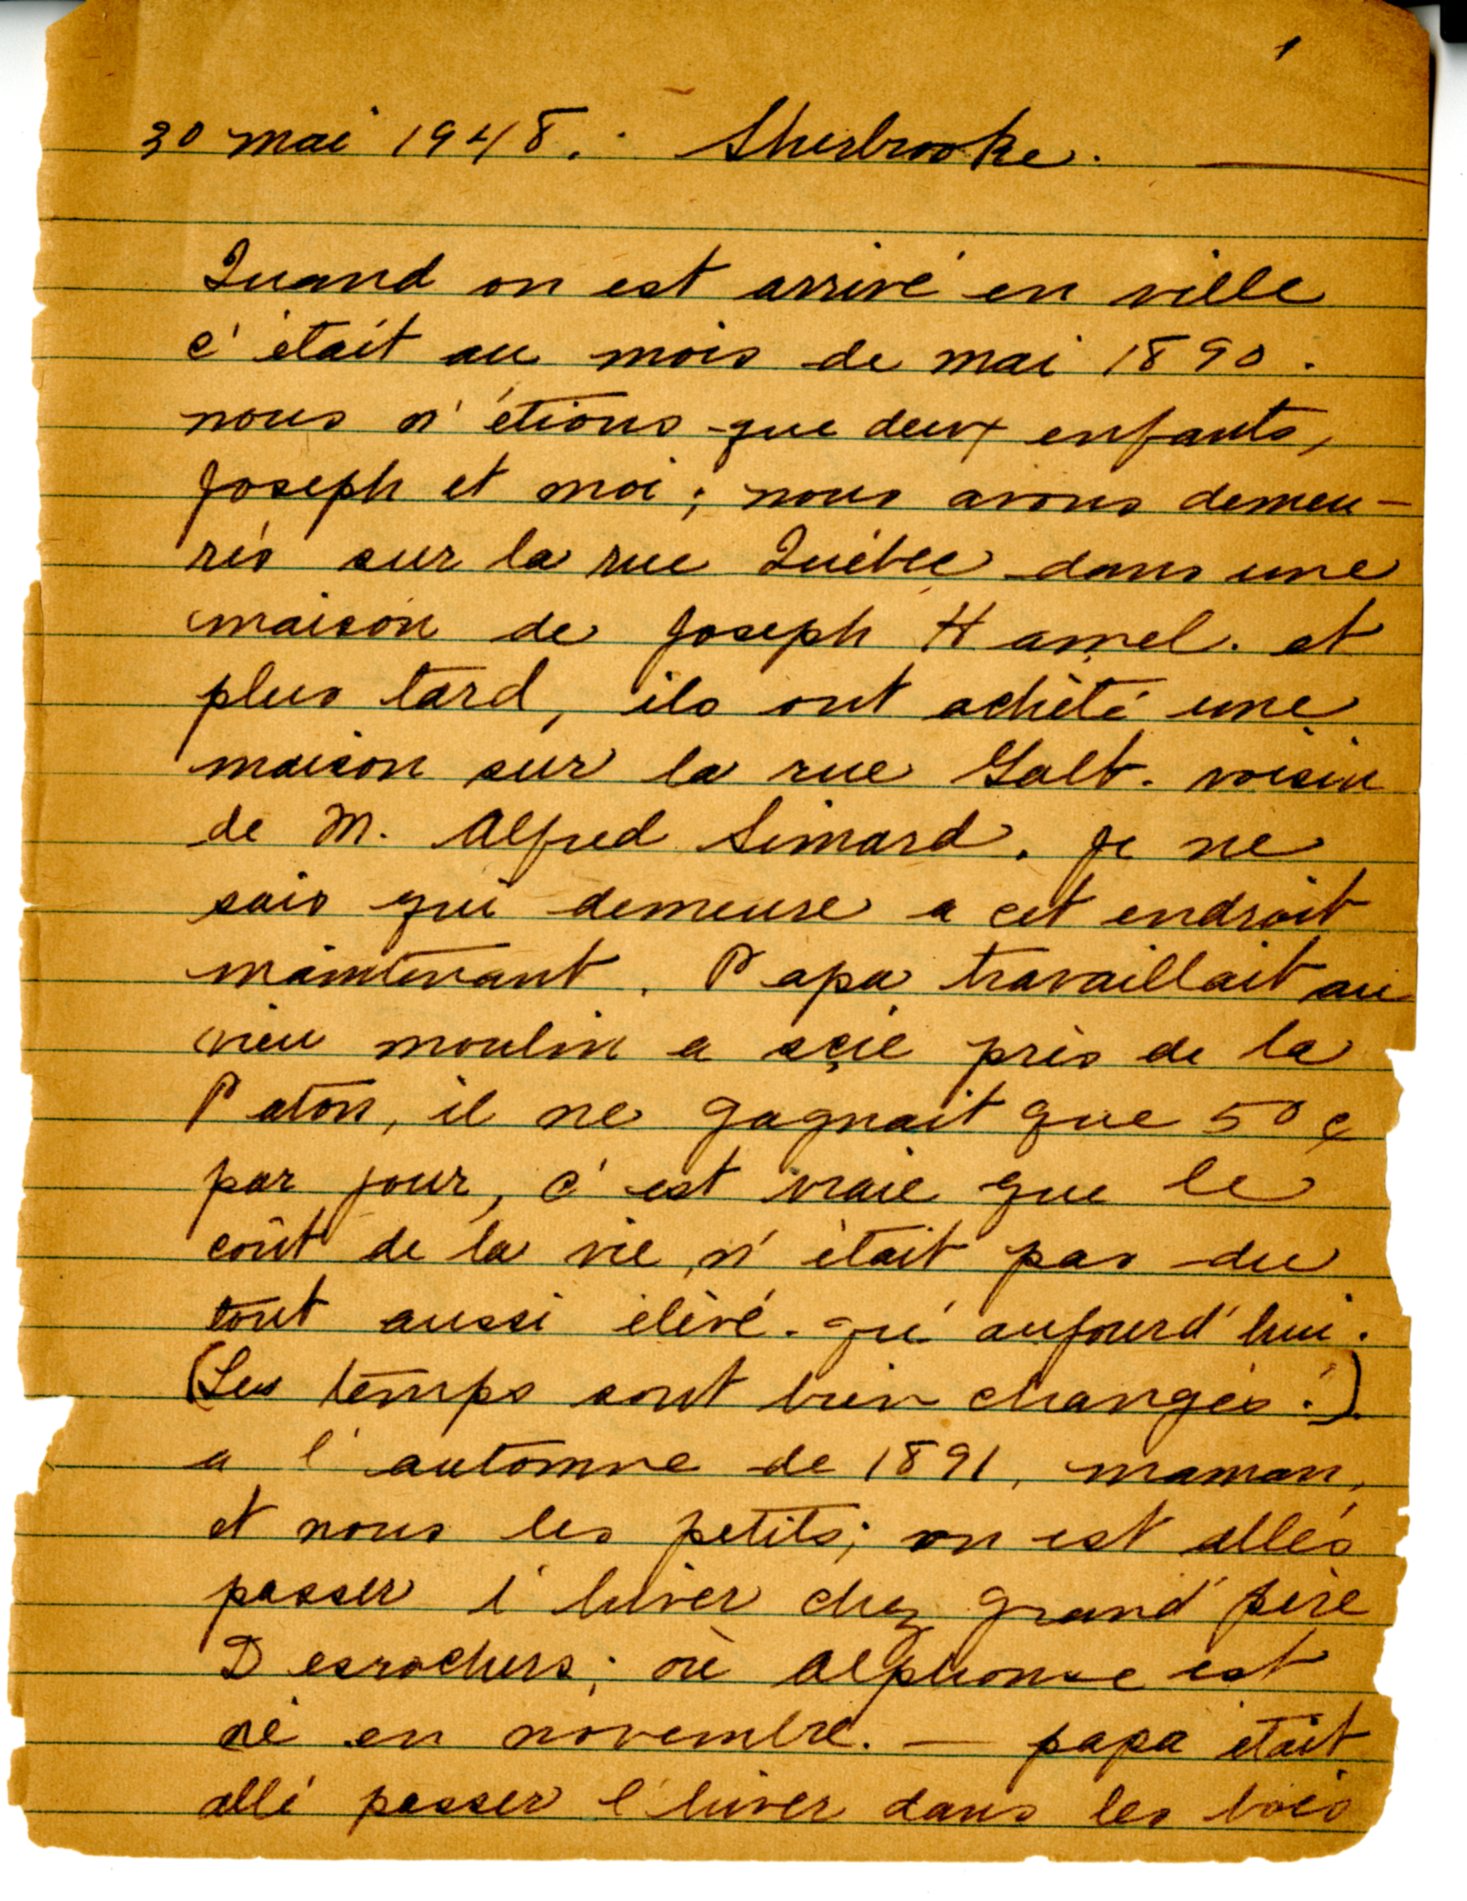 1
30 mai 1948. Sherbrooke.
Quand on est arrivé en ville
c'était au mois de mai 1890.
nous n'étions que deux enfants,
Joseph et moi; nous avons demeu-
rés sur la rue Québec dans une
maison de Joseph Hamel. et
plus tard, ils ont achété une
maison sur la rue Galt. voisin
de M. Alfred Simard. Je ne
sais qui demeure a cet endroit
maintenant. Papa travaillait au
vieu moulin a scie près de la
Paton, il ne gagnait que 50 ¢
par jour, c'est vraie que le
coût de la vie, n'était pas du
tout aussi élevé. qu'aujourd'hui.
(Les temps sont bien changés!).
a l'automne de 1891, maman,
et nous les petits; on est allés
passer l'hiver chez grand'père
Desrochers; où Alphonse est
né en novembre. — papa était
allé passer l'hiver dans les bois